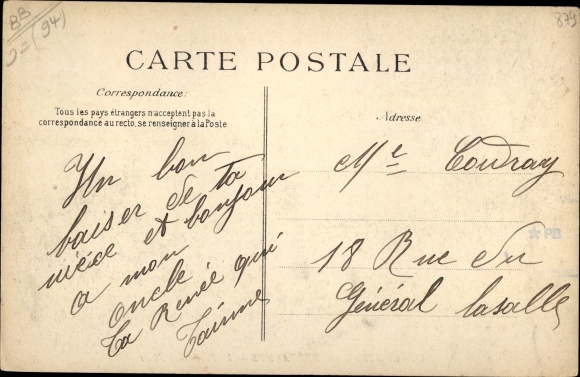 BB
(94)
879
CARTE POSTALE
Correspondance:
Tous les pays étrangers n'acceptent pas la
correspondance au recto, se renseigner à la Poste
Adresse
Un bon
baiser de ta
nièce et bonjour
a mon
oncle
ta Renée qui
t'aime
Me Coudray
18 Rue du
Général Lasalle
PB